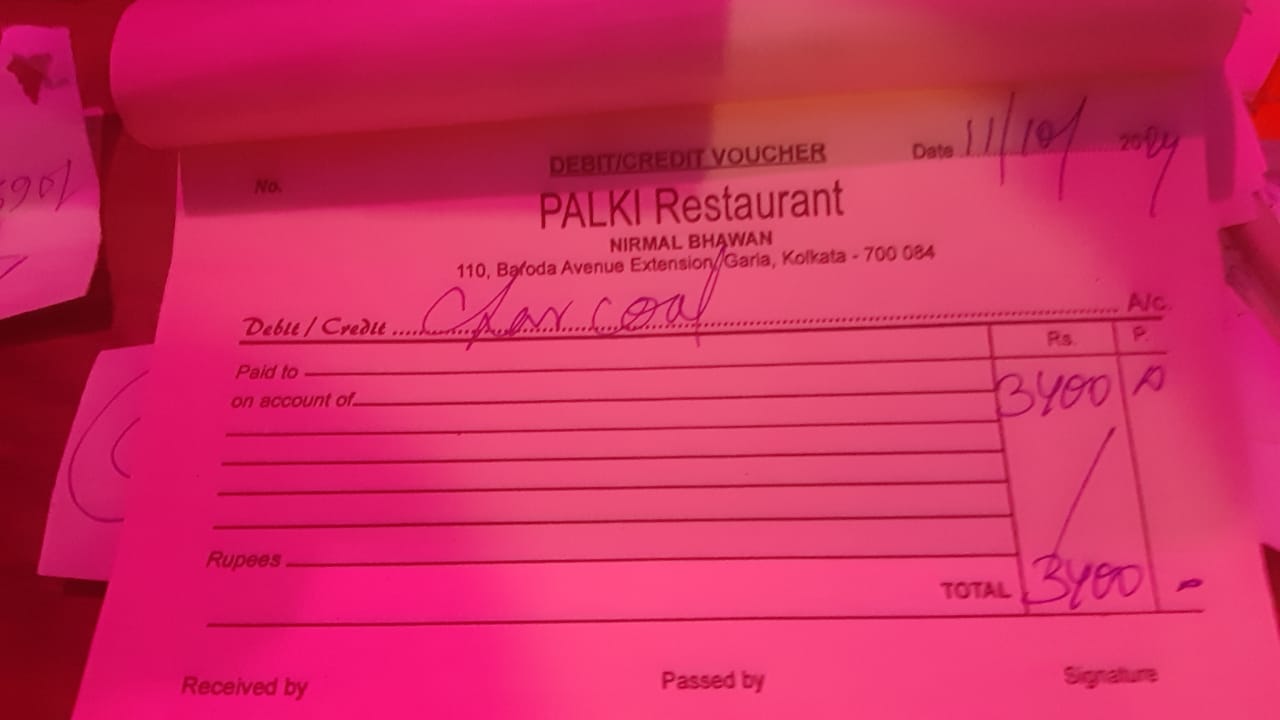 DEBIT/CREDIT VOUCHER
No.
Date 11/10/ 2024
PALKI Restaurant
NIRMAL BHAWAN
110, Baroda Avenue Extension, Garia, Kolkata - 700 084
Debit / Credit Charcoal A/c.
Rs. P.
Paid to 3400
on account of
Rupees
TOTAL 3400 -
Received by Passed by Signature